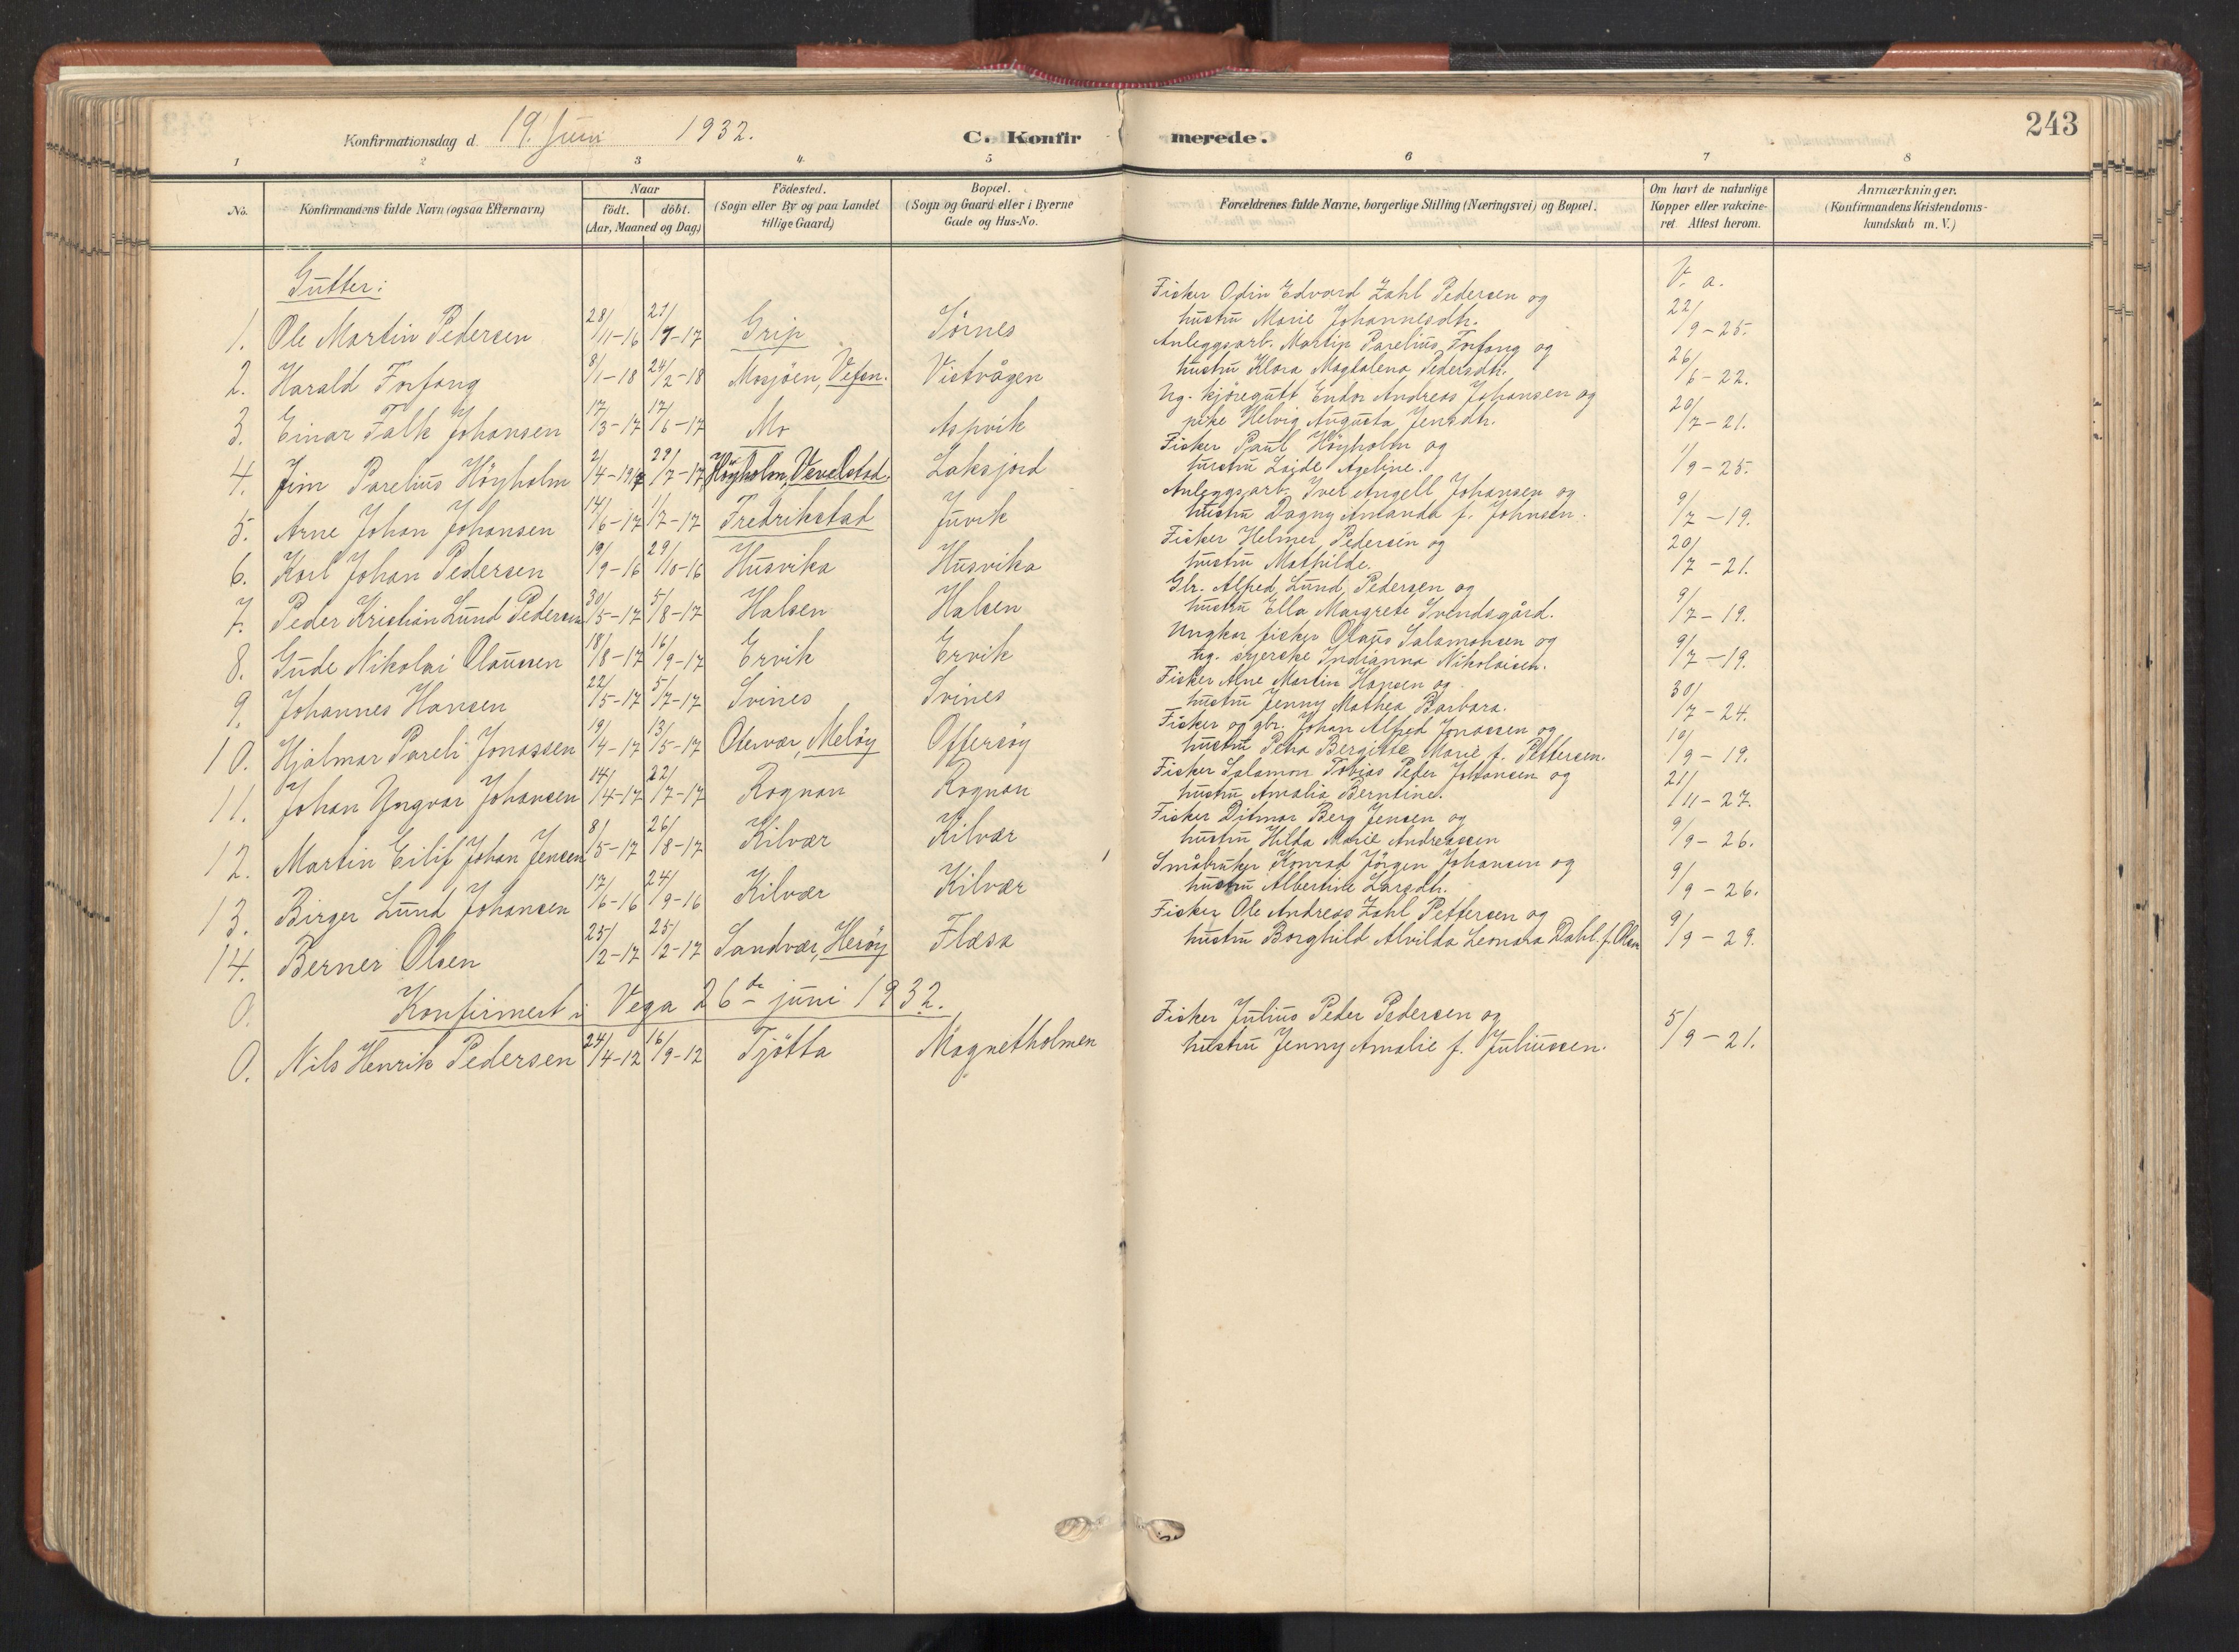 243
Konfirmationsdag d. 19. Juni 1932.
C. Konfirmerede.
1 2 3 4 5 6 7 8
No.
Konfirmandens fulde Navn (ogsaa Efternavn)
Naar
født. døbt.
(Aar, Maaned og Dag.)
Födested.
(Sogn eller By og paa Landet
tillige Gaard.)
Bopæl.
(Sogn og Gaard eller i Byerne
Gade og Hus-No.
Forældrenes fulde Navne, borgerlige Stilling (Næringsvei) og Bopæl.
Om havt de naturlige
Kopper eller vakcine-
ret. Attest herom.
Anmærkninger.
(Konfirmandens Kristendoms-
kundskab m. V.)
Gutter:
V. a.
Fisker Odin Edvard Zahl Pedersen og
1. Ole Martin Pedersen 28/11-16 21/7-17 Grip Sörnes hustru Marie Johannesdtr. 22/9-25.
Anleggsarb. Martin Parelius Forfang og
2. Harald Forfang 8/1-18 24/2-18 Mosjöen, Vefsn. Vistvågen hustru Klara Magdalena Pedersdtr. 26/6-22.
Ug. kjöregutt Endor Andreas Johansen og
3. Einar Falk Johansen 17/3-17 17/6-17 Mo Aspvik pike Helvig Augusta Jensdtr. 20/7-21.
Fisker Paul Höyholm og
4. Jim Parelius Höyholm 2/4-1917 29/7-17 Höyholm, Vevelstad. Laksjord hustru Ageline. 1/9-25.
Anleggsarb. Iver Angell Johansen og
5. Arne Johan Johansen 14/6-17 1/7-17 Fredrikstad Juvik hustru Dagny Amanda f. Johnsen. 9/7-19.
Fisker Helmer Pedersen og
6. Karl Johan Pedersen 19/9-16 29/10-16 Husvika Husvika hustru Mathilde. 20/7-21.
Glr. Alfred Lund Pedersen og
7. Peder Kristian Lund Pedersen 30/5-17 5/8-17 Halsen Halsen hustru Ella Margrete Svendsgård. 9/7-19.
Ungkar fisker Olaus Salamonsen og
8. Gude Nikolai Olaussen 18/8-17 16/9-17 Ervik Ervik ug. syerske Indianna Nikolaisen. 9/7-19.
Fisker Arne Martin Hansen og
9. Johannes Hansen 22/5-17 5/7-17 Svines Svines hustru Jenny Mathea Barbara. 30/7-24.
Fisker og gbr. Johan Alfred Jonassen og
10. Hjalmar Pareli Jonassen 19/4-17 13/5-17 Otervær, Melöy Offersöy hustru Petra Bergitte Marie f. Pettersen. 10/9-19.
Fisker Salamon Tobias Peder Johansen og
11. Johan Yngvar Johansen 14/4-17 22/7-17 Rognan Rognan hustru Amalia Berntine. 21/11-27.
Fisker Ditmar Berg Jensen og
12. Martin Eilif Johan Jensen 8/5-17 26/8-17 Kilvær Kilvær hustru Hilda Marie Andreassen 9/9-26.
Småbruker Konrad Jörgen Johansen og
13. Birger Lund Johansen 17/6-16 24/9-16 Kilvær Kilvær hustru Albertine Larsdtr. 9/9-26.
Fisker Ole Andreas Zahl Pettersen og
14. Berner Olsen 25/2-17 25/2-17 Sandvær, Heröy Flæsa hustru Borghild Alvilda Leonora Dahl. f. Olsen 9/9-29.
0. Konfirmert i Vega 26de juni 1932.
Fisker Julius Peder Pedersen og
0. Nils Henrik Pedersen 24/4-12 16/9-12 Tjötta Magnetholmen hustru Jenny Amalie f. Juliussen. 5/9-21.